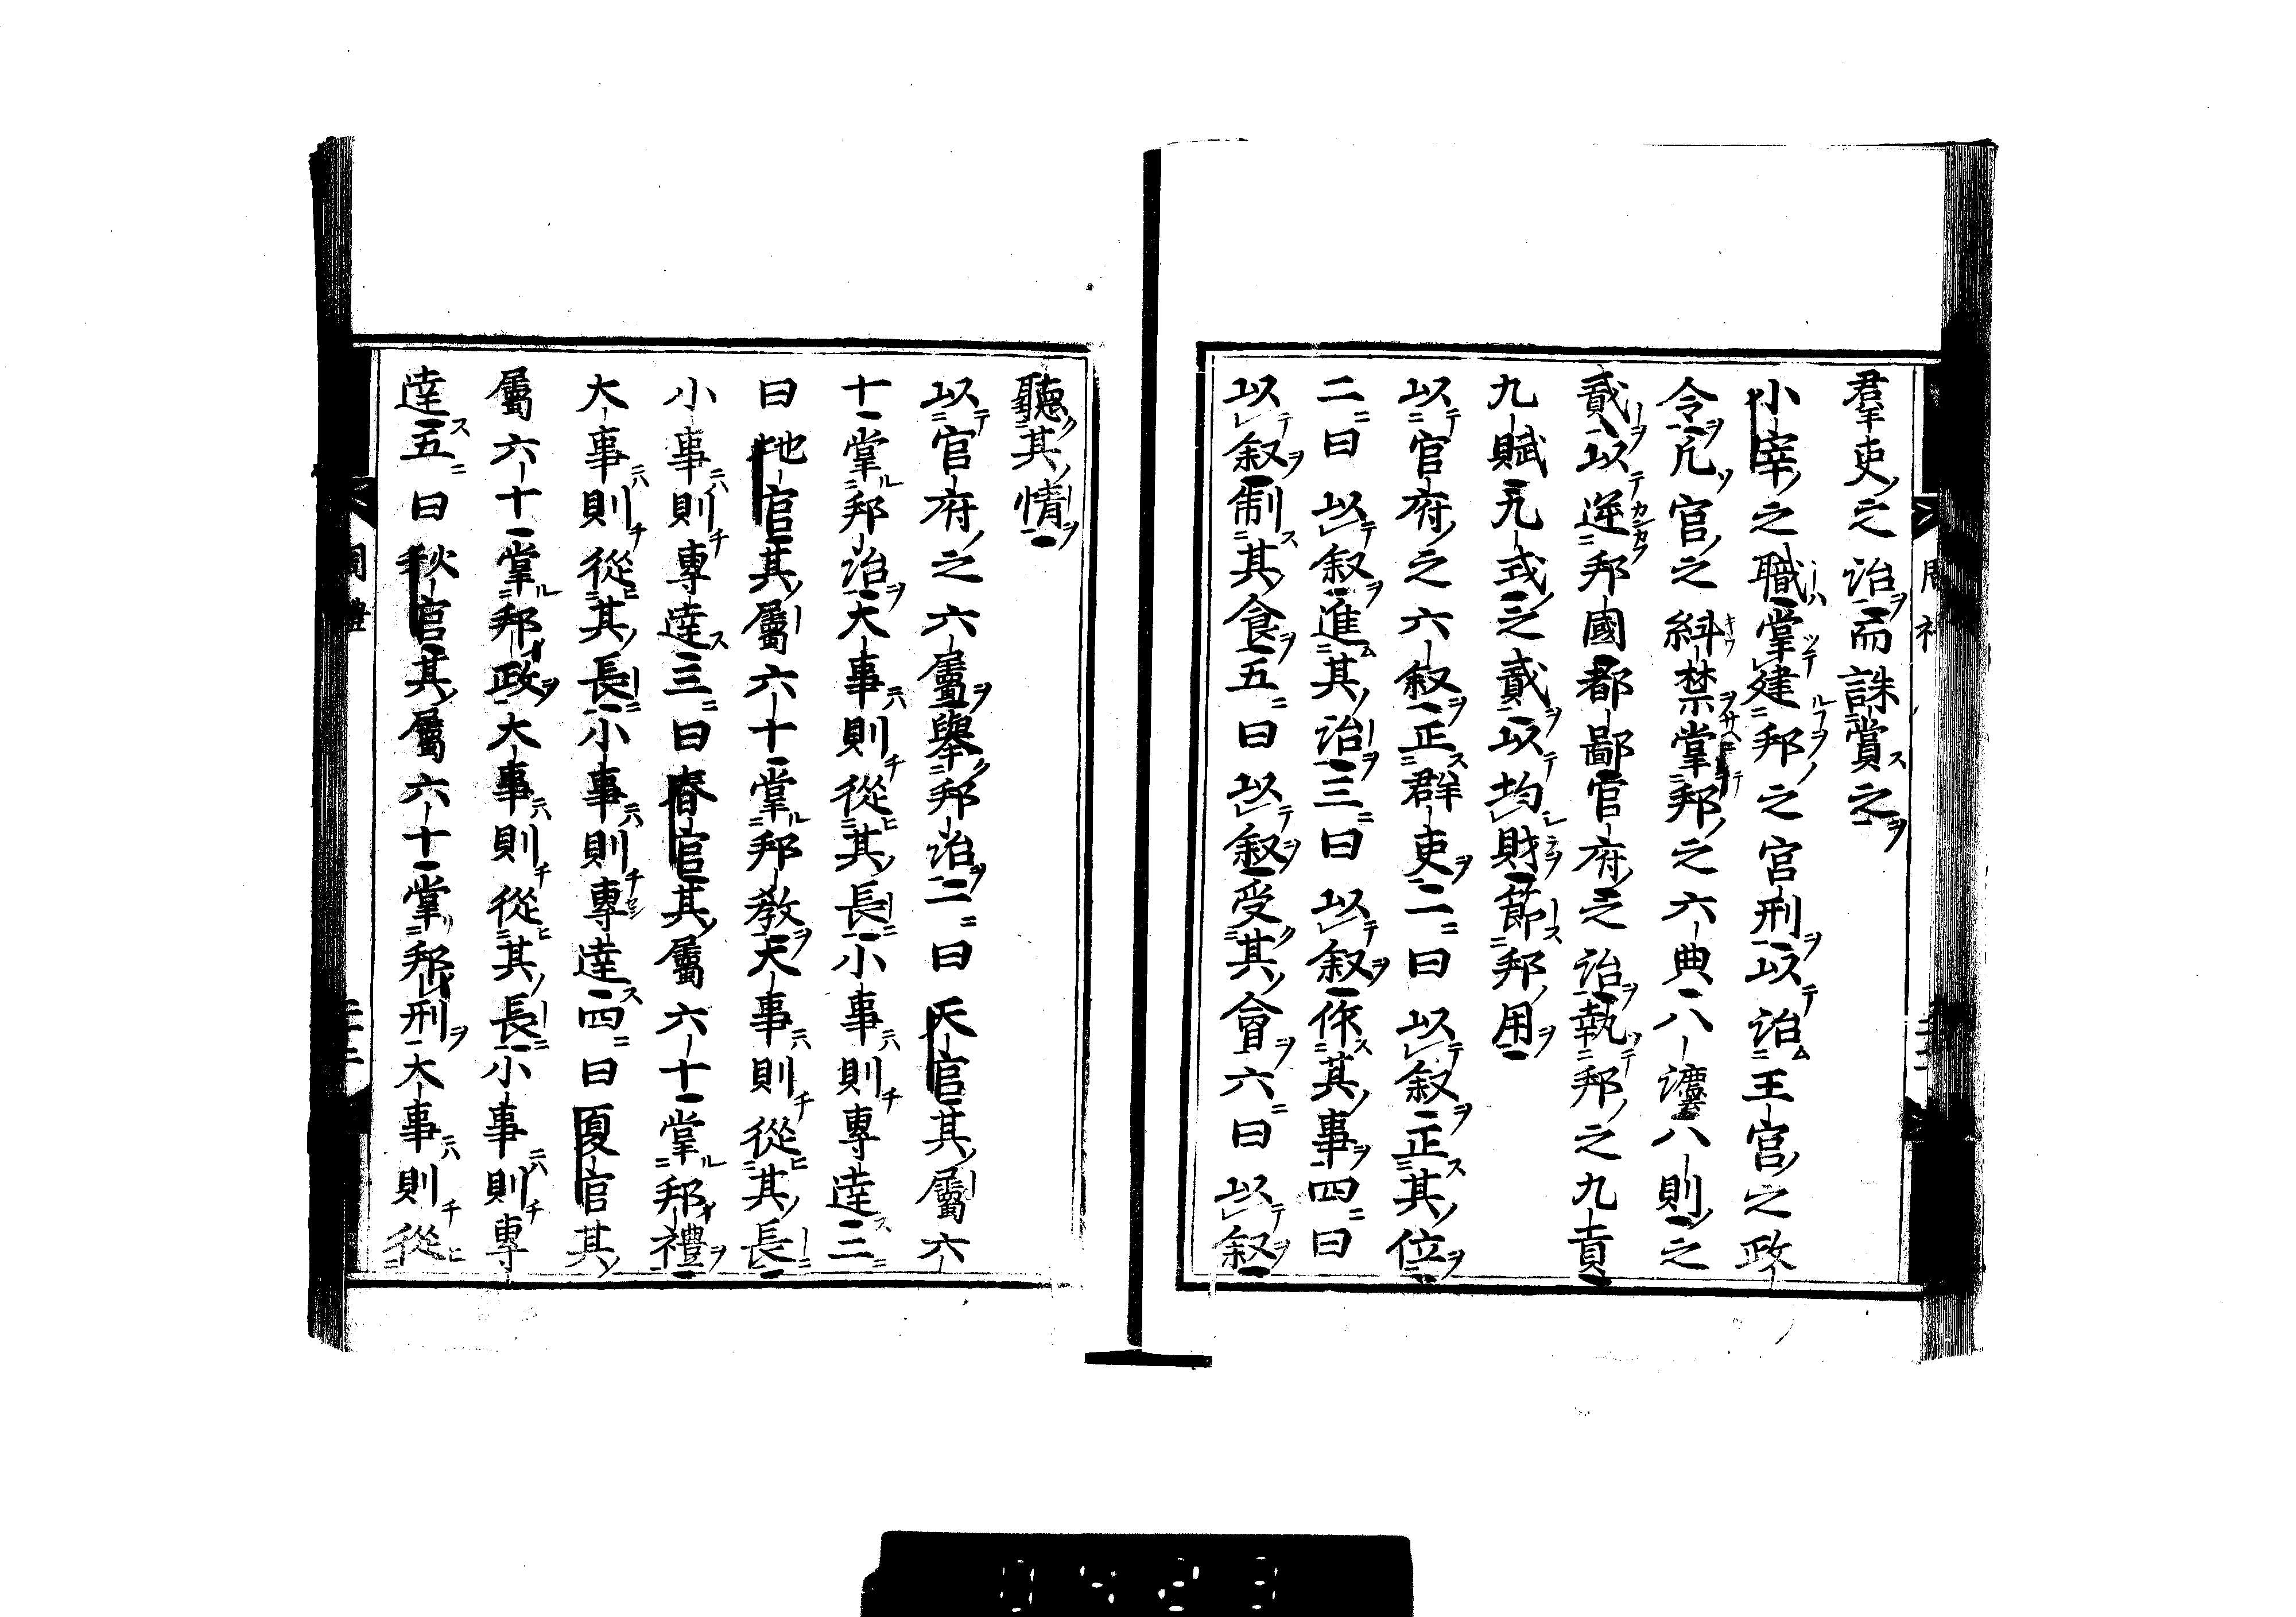 羣吏之治而誅賞之
小宰之職掌建邦之宮刑以治王宮之政
令凡官之糾禁掌邦之六典八灋八則之
貳以逆邦國都鄙官府之治執邦之九貢
九賦九式之貳以均財節邦用
以官府之六叙正群吏一曰以叙正其位
二曰以叙進其治三曰以叙作其事四曰
以叙制其食五曰以叙受其會六曰以叙
聽其情
以官府之六屬舉邦治一曰天官其屬六
十掌邦治大事則從其長小事則專達二
曰地官其屬六十掌邦敎大事則從其長
小事則專達三曰春官其屬六十掌邦禮
大事則從其長小事則專達四曰夏官其
屬六十掌邦政大事則從其長小事則專
達五曰秋官其屬六十掌邦刑大事則從
周禮
0423